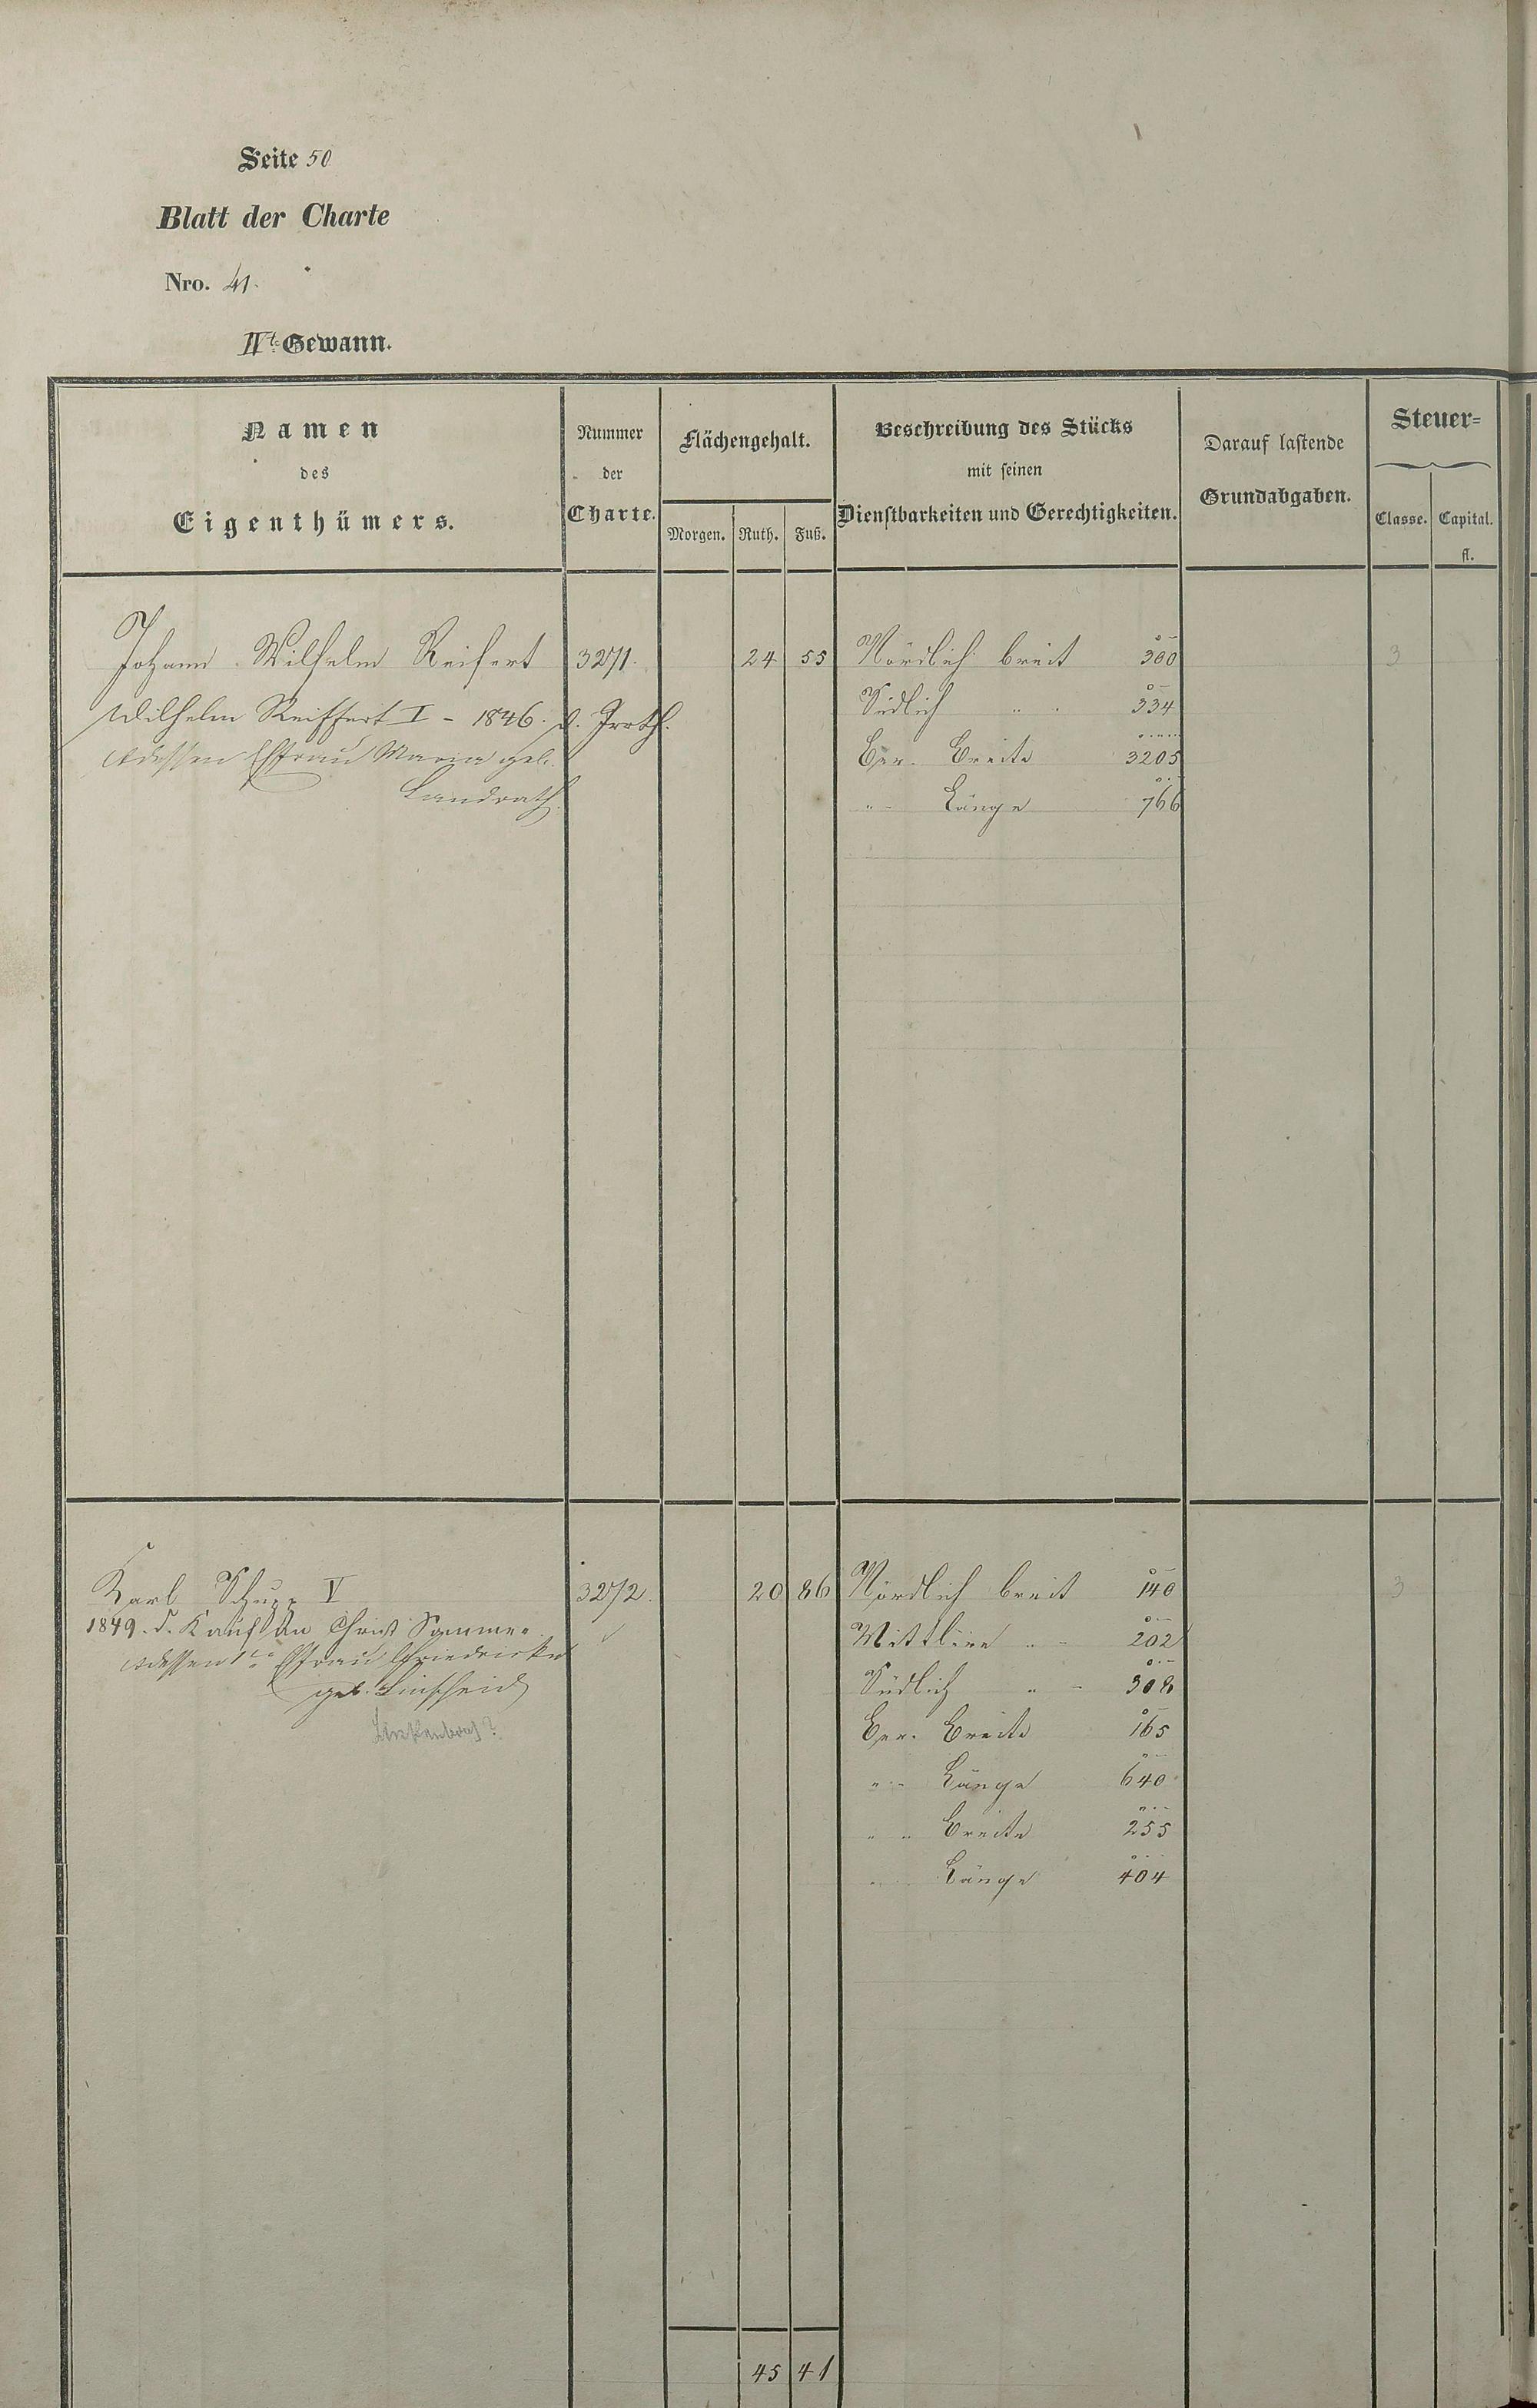 Seite 50
Blatt der Charte
Nro. 41.
IIt. Gewann.
Namen
des
Eigenthümers.
Nummer
der
Charte.
Flächengehalt.
Morgen. Ruth. Fuß.
Beschreibung des Stücks
mit seinen
Dienstbarkeiten und Gerechtigkeiten.
Darauf lastende
Grundabgaben.
Steuer=
Classe. Capital.
fl.
Johann Wilhelm Reifert 3271. 24 55 Nördlich breit 300 3
Wilhelm Reiffert I - 1846. d.
Südlich " 334
&dessen Ehfrau Maria geb.
Ber. Breite 3205
Landrath.
" Länge 766
Karl Schupp V 3272. 20 86 Nördlich breit 140 3
1849. d. Kauf an Christ Sommer
Mittlere " 202
&dessen Ehfrau Friedricke
geb. Linscheid
Südlich " 308
Ber. Breite 165
" Länge 640
" " Breite 255
" Länge 404
45 41